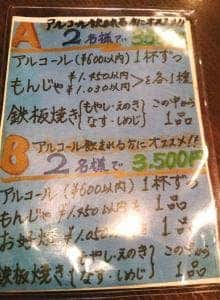 A アルコール飲まれる方にオススメ!!
2名様で 35
アルコール(¥600以内)1杯ずつ
もんじゃ{¥1.450以内 ¥1.030以内}を各1種
鉄板焼き{もやし・えのき なす・しめじ}この中から1品
B アルコール飲まれる方にオススメ!!
2名様で 3.500円
アルコール(¥600以内)1杯ずつ
もんじゃ ¥1.450以内も 1品
お好焼 ¥1.050以内 1品
鉄板焼き{もやし・えのき なす・しめじ}この中から1品